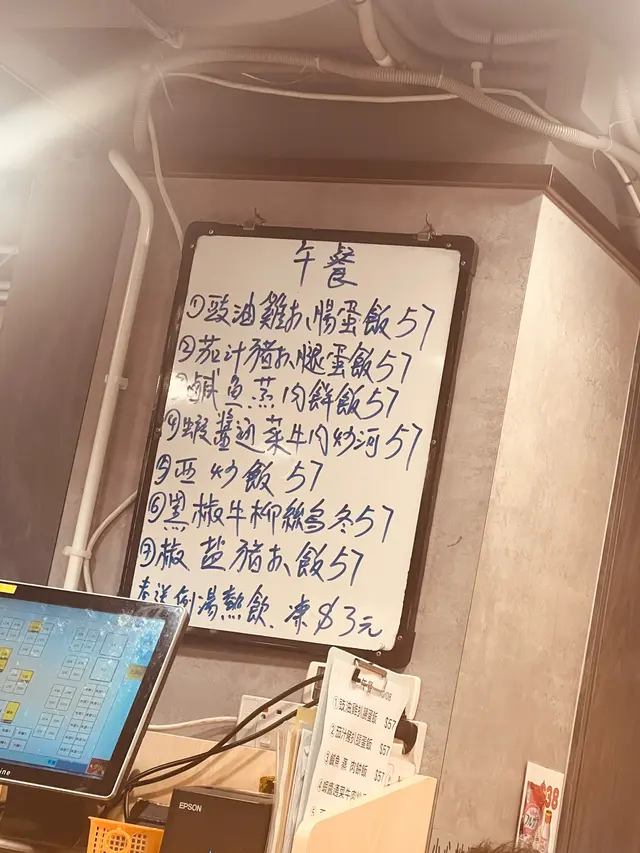 午餐
①豉油雞扒腸蛋飯57
②茄汁豬扒腿蛋飯57
鹹魚蒸肉餅飯57
④蝦醬通菜牛肉炒河57
⑤西炒飯57
⑥黑椒牛柳絲烏冬57
⑦椒鹽豬扒飯57
例湯熱飲.凍$3元
午餐
①豉油雞扒腸蛋飯 $57
②茄汁豬扒腿蛋飯 $57
③鹹魚蒸肉餅飯 $57
EPSON
$38